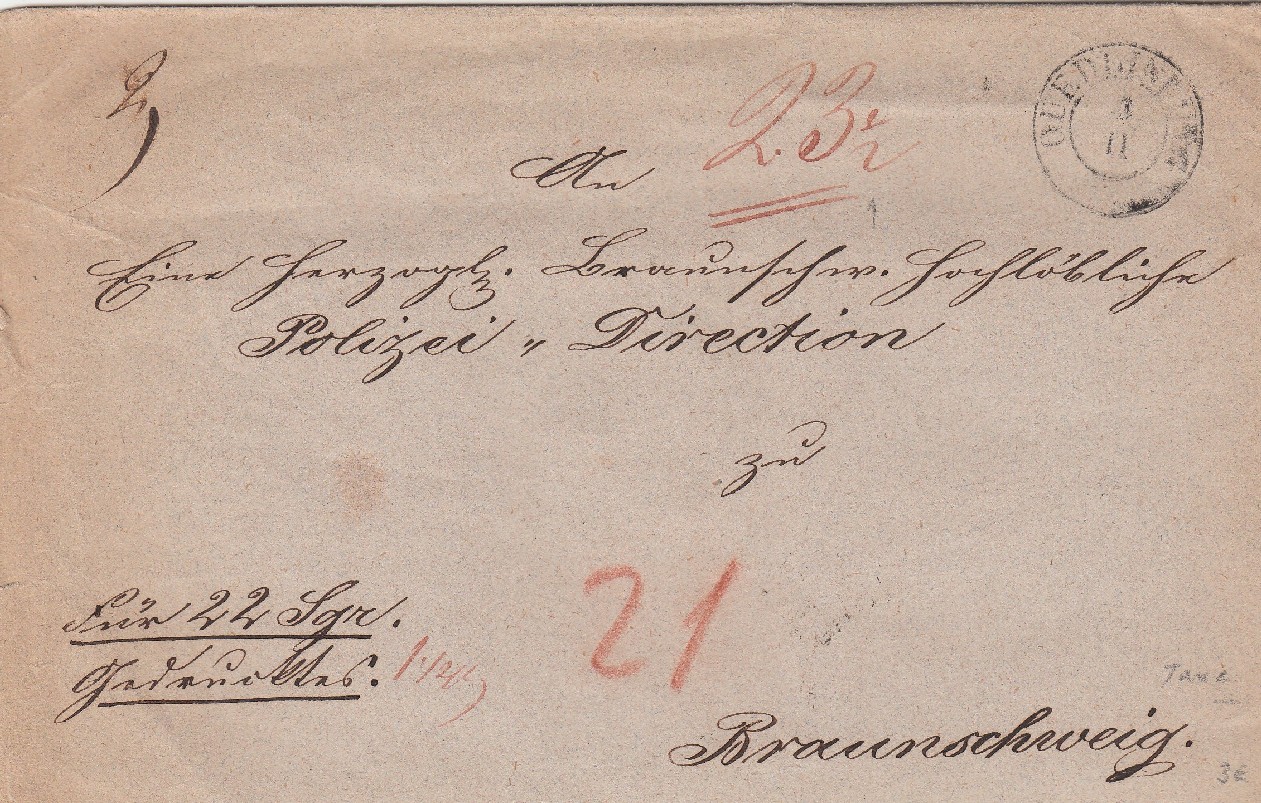 2)
An
23 1/2
QUEDLINBURG
3
11
Eine Herzogl. Braunschw. Hochlöbliche
Polizei „ Direction
zu
Für 22 Sgr.
Gedrucktes.
21
Braunschweig.
3€